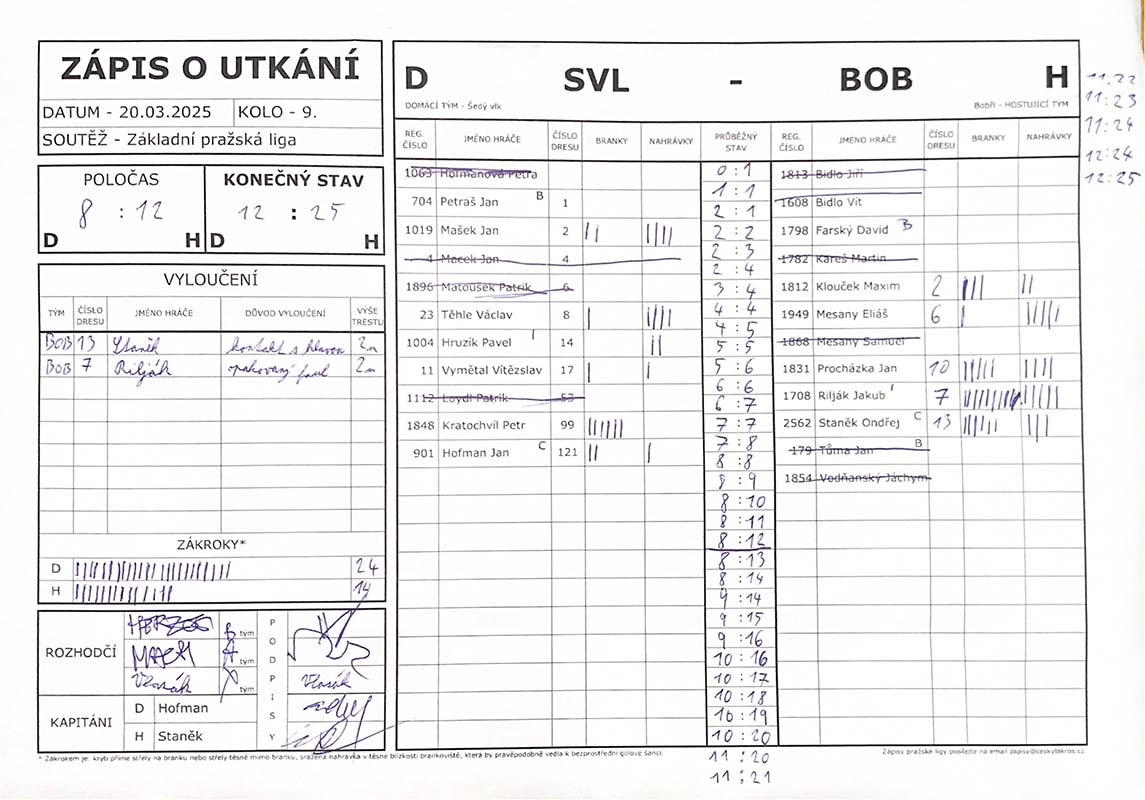 ZÁPIS O UTKÁNÍ
DATUM - 20.03.2025 KOLO - 9.
SOUTĚŽ - Základní pražská liga
POLOČAS KONEČNÝ STAV
8 : 12 12 : 25
D H D H
VYLOUČENÍ
TÝM ČÍSLO DRESU JMÉNO HRÁČE DŮVOD VYLOUČENÍ VÝŠE TRESTU
BOB 13 Staněk kontakt s hlavou 2m
BOB 7 Rilják opakovaný faul 2m
ZÁKROKY*
D 24
H 14
ROZHODČÍ
tým
tým
Vlasák tým Vlasák
PODPISY
KAPITÁNI
D Hofman
H Staněk
D SVL - BOB H
DOMÁCÍ TÝM - Šedý vlk Bobři - HOSTUJÍCÍ TÝM
REG. ČÍSLO JMÉNO HRÁČE ČÍSLO DRESU BRANKY NAHRÁVKY PRŮBĚŽNÝ STAV REG. ČÍSLO JMÉNO HRÁČE ČÍSLO DRESU BRANKY NAHRÁVKY
1063 Hofmanová Petra
704 Petraš Jan B 1
1019 Mašek Jan 2 || ||||
4 Macek Jan 4
1896 Matoušek Patrik 6
23 Těhle Václav 8 | ||||
1004 Hruzík Pavel 14 ||
11 Vymětal Vítězslav 17 | |
1112 Loydl Patrik 53
1848 Kratochvíl Petr 99 ||||||
901 Hofman Jan C 121 || |
0 : 1
1 : 1
2 : 1
2 : 2
2 : 3
2 : 4
3 : 4
4 : 4
4 : 5
5 : 5
5 : 6
6 : 6
6 : 7
7 : 7
7 : 8
8 : 8
8 : 9
8 : 10
8 : 11
8 : 12
8 : 13
8 : 14
9 : 14
9 : 15
9 : 16
10 : 16
10 : 17
10 : 18
10 : 19
10 : 20
11 : 20
11 : 21
11:22
11:23
11:24
12:24
12:25
1813 Bidlo Jiří
1608 Bidlo Vít
1798 Farský David B
1782 Kareš Martin
1812 Klouček Maxim 2 ||| ||
1949 Mesany Eliáš 6 | |||||
1868 Mesany Samuel
1831 Procházka Jan 10 ||||| ||||
1708 Rilják Jakub 7
2562 Staněk Ondřej C 13 |||||| |||
179 Tůma Jan B
1854 Vodňanský Jáchym
* Zákrokem je: krytí přímé střely na branku nebo střely těsně mimo branku, sražená nahrávka v těsné blízkosti brankoviště, která by pravěpodobně vedla k bezprostřední gólové šanci.
Zápisy pražské ligy posílejte na email zapisy@ceskylakros.cz